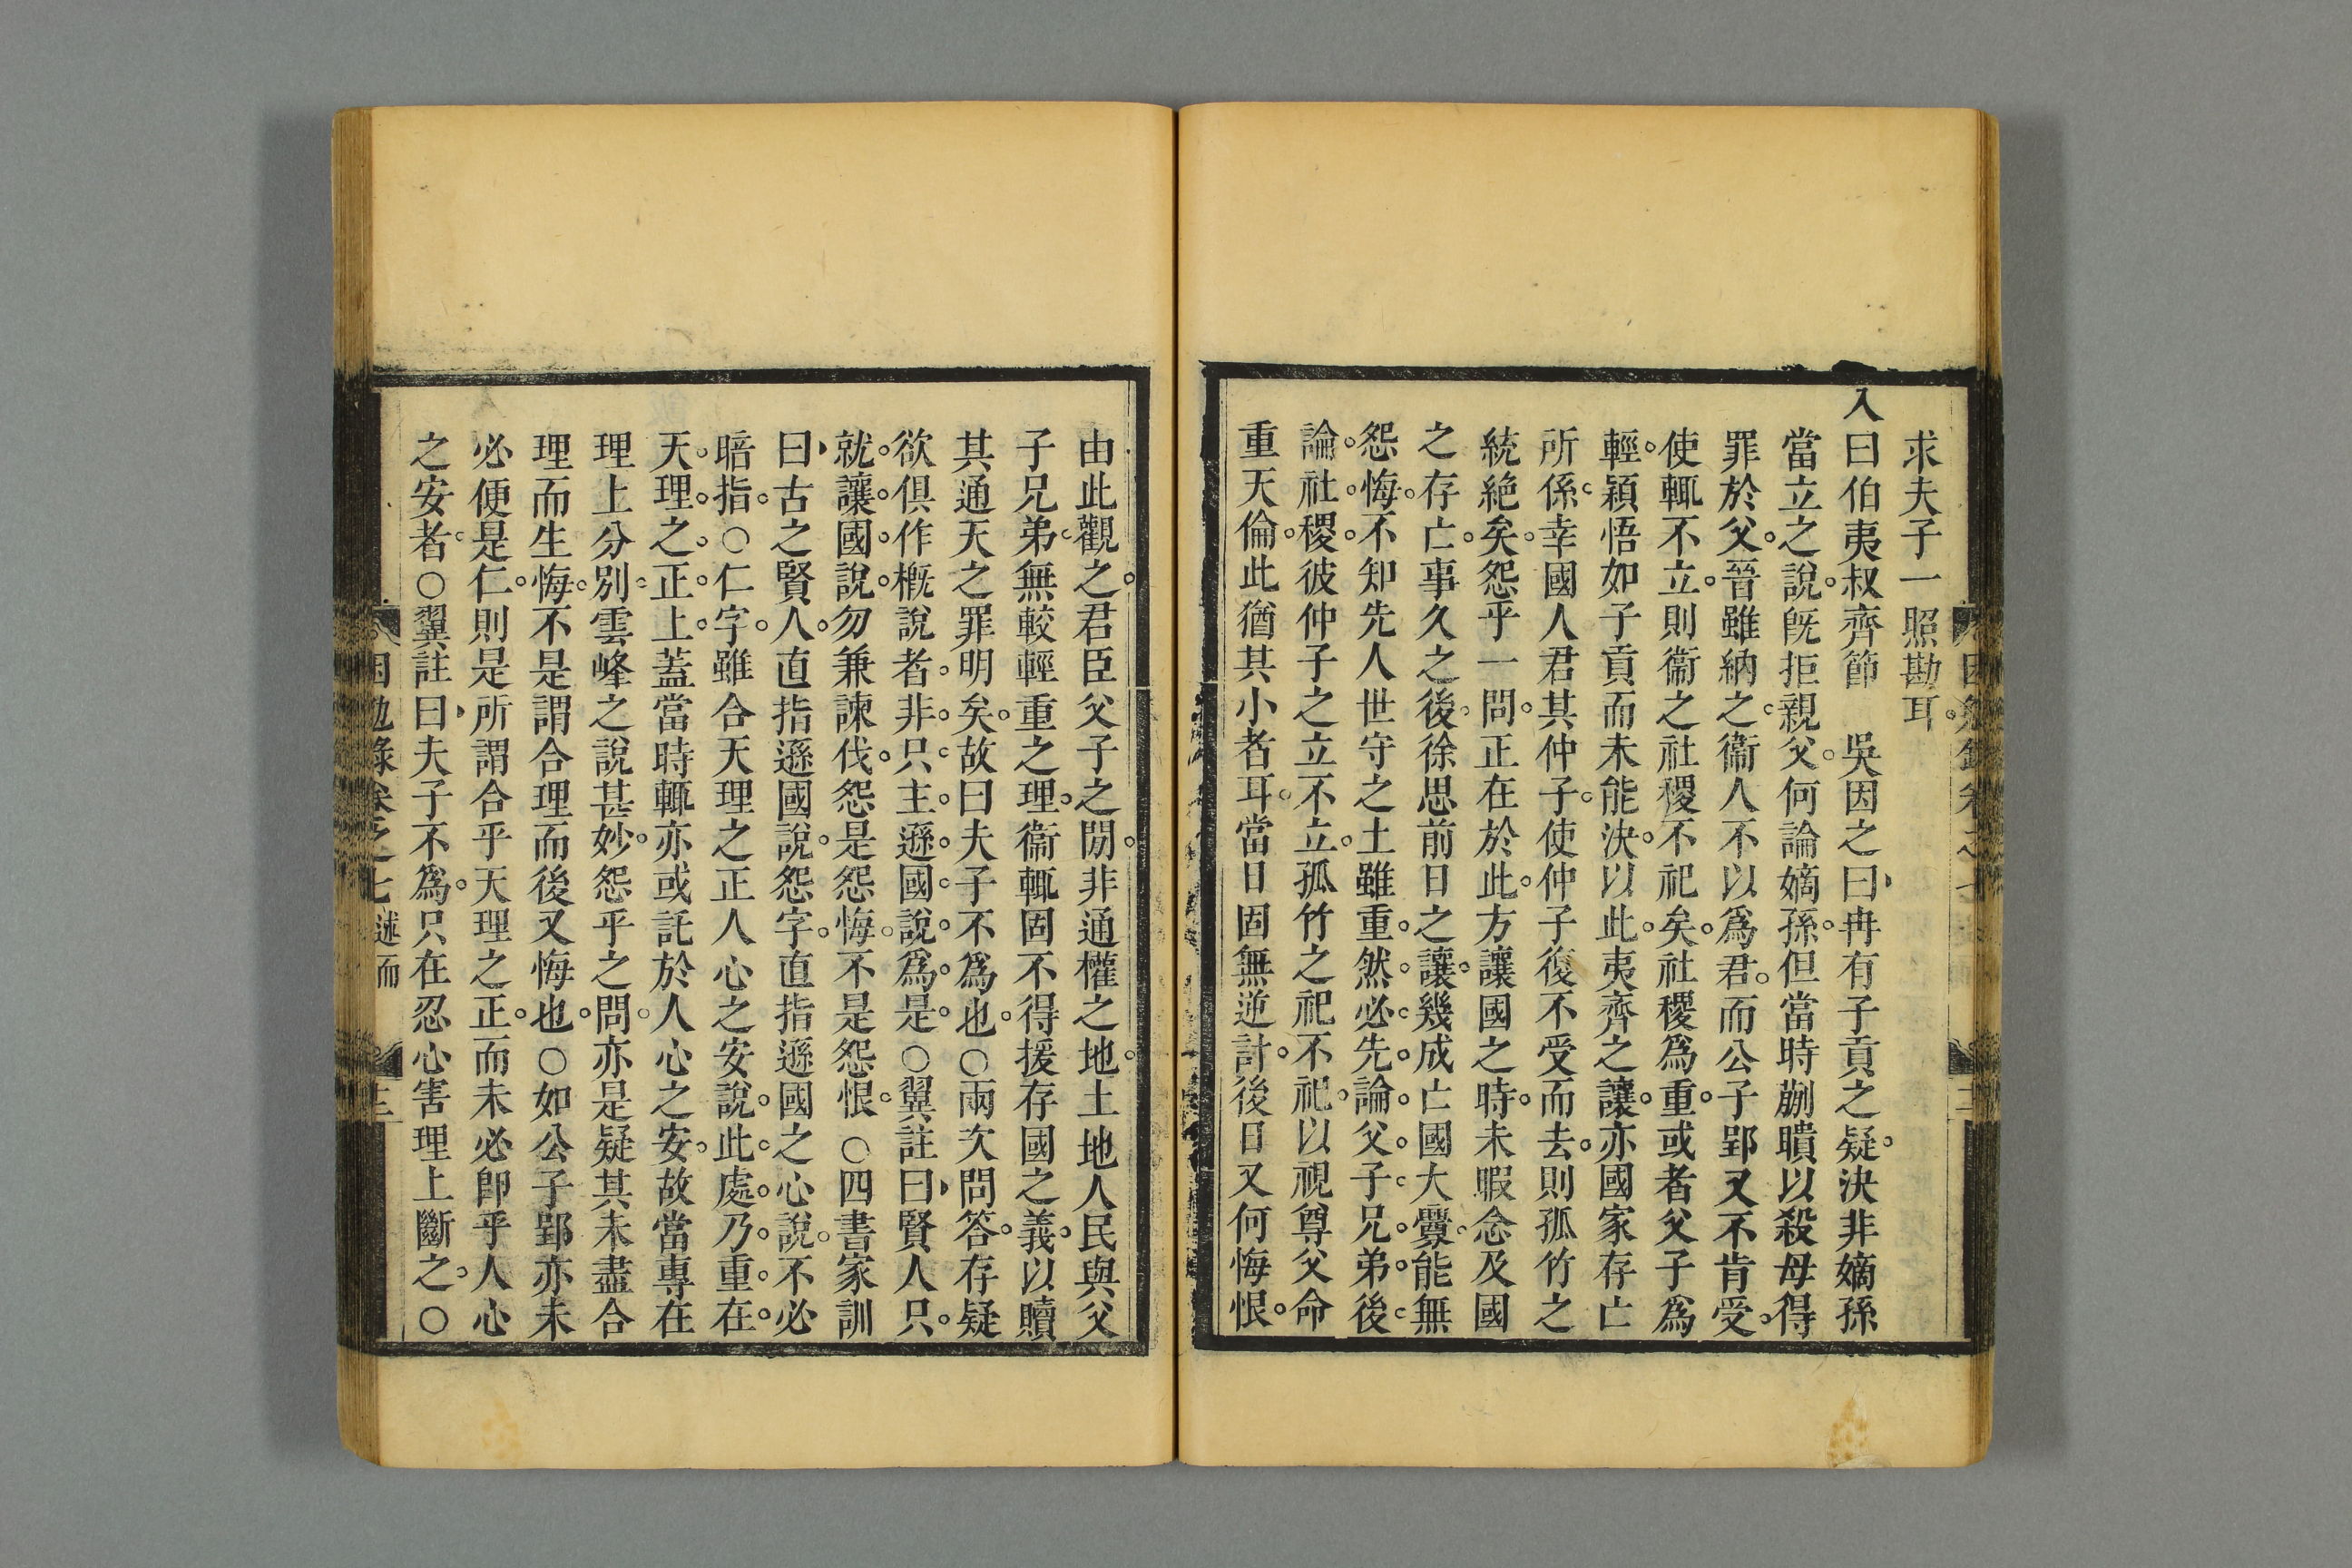 求夫子一照勘耳
入曰伯夷叔齊節　吳因之曰冉有子貢之疑決非嫡孫
當立之說旣拒親父何論嫡孫但當時蒯聵以殺母得
罪於父晉雖納之衞人不以爲君而公子郢又不肯受
使輒不立則衞之社稷不祀矣社稷爲重或者父子爲
輕穎悟如子貢而未能決以此夷齊之讓亦國家存亡
所係幸國人君其仲子使仲子復不受而去則孤竹之
統絶矣怨乎一問正在於此方讓國之時未暇念及國
之存亡事久之後徐思前日之讓幾成亡國大釁能無
怨悔不知先人世守之土雖重然必先論父子兄弟後
論社稷彼仲子之立不立孤竹之祀不祀以視尊父命
重天倫此猶其小者耳當日固無逆計後日又何悔恨
由此觀之君臣父子之閒非通權之地土地人民與父
子兄弟無較輕重之理衞輒固不得援存國之義以贖
其通天之罪明矣故曰夫子不爲也○兩次問答存疑
欲俱作槪說者非只主遜國說爲是○翼註曰賢人只
就讓國說勿兼諫伐怨是怨悔不是怨恨○四書家訓
曰古之賢人直指遜國說怨字直指遜國之心說不必
暗指○仁字雖合天理之正人心之安說此處乃重在
天理之正上蓋當時輒亦或託於人心之安故當專在
理上分別雲峰之說甚妙怨乎之問亦是疑其未盡合
理而生悔不是謂合理而後又悔也○如公子郢亦未
必便是仁則是所謂合乎天理之正而未必卽乎人心
之安者○翼註曰夫子不爲只在忍心害理上斷之○
困勉錄卷之七 述而 十二